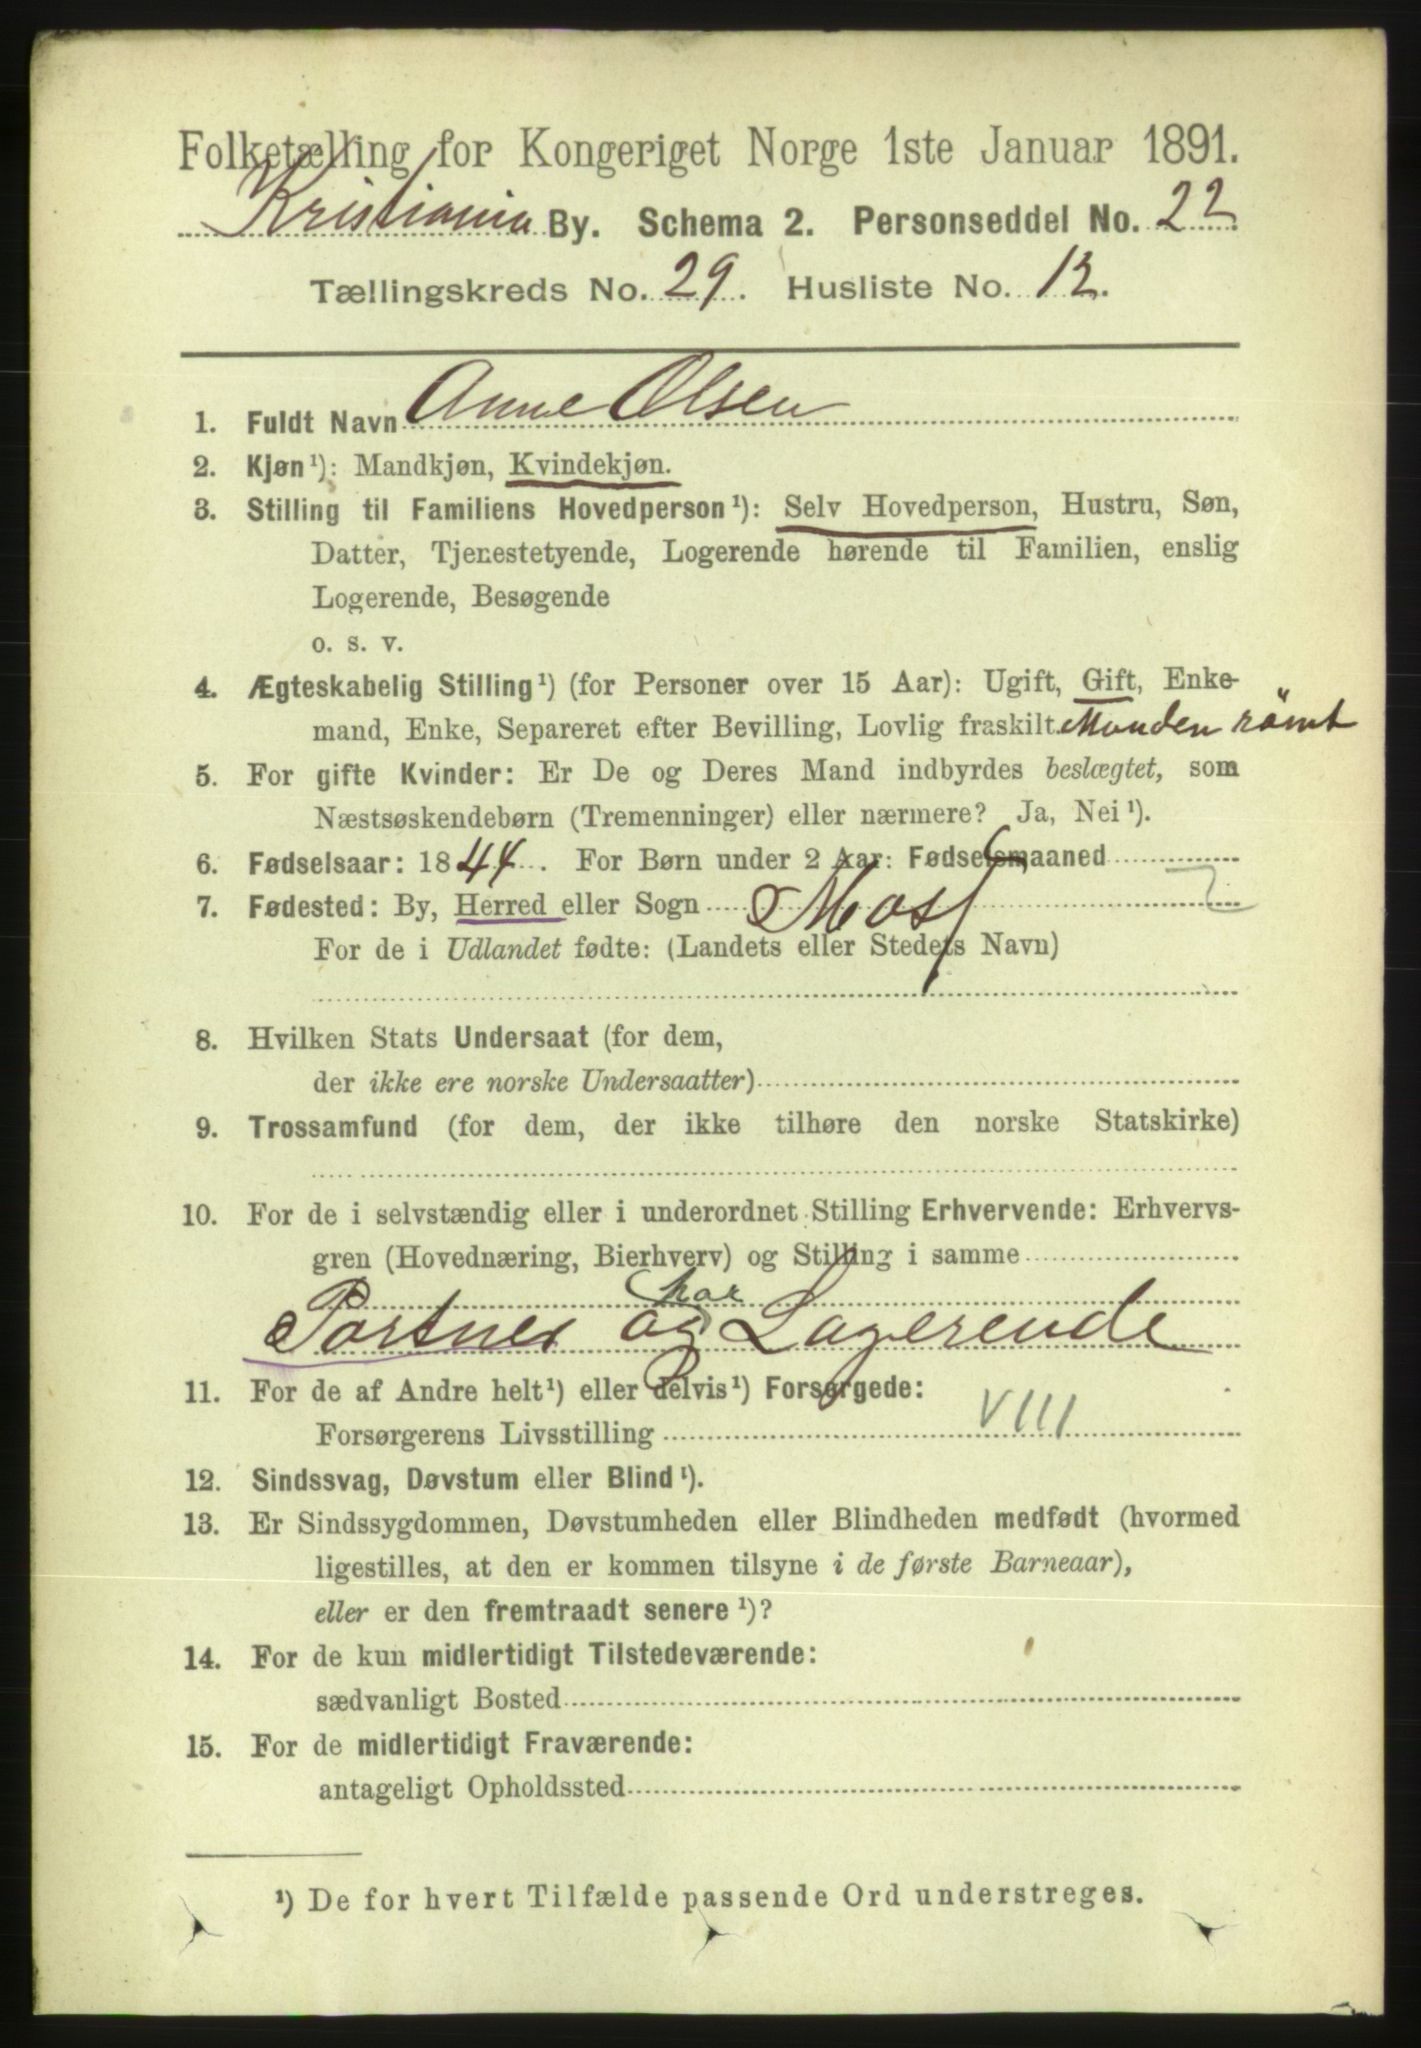 Folketælling for Kongeriget Norge 1ste Januar 1891.
Kristiania By. Schema 2. Personseddel No. 22
Tællingskreds No. 29. Husliste No. 12.
1. Fuldt Navn Anne Olsen
2. Kjøn¹): Mandkjøn, Kvindekjøn.
3. Stilling til Familiens Hovedperson¹): Selv Hovedperson, Hustru, Søn,
Datter, Tjenestetyende, Logerende hørende til Familien, enslig
Logerende, Besøgende
o. s. v.
4. Ægteskabelig Stilling¹) (for Personer over 15 Aar): Ugift, Gift, Enke-
mand, Enke, Separeret efter Bevilling, Lovlig fraskilt. Manden römt
5. For gifte Kvinder: Er De og Deres Mand indbyrdes beslægtet, som
Næstsøskendebørn (Tremenninger) eller nærmere? Ja, Nei¹).
6. Fødselsaar: 1844. For Børn under 2 Aar: Fødselsmaaned
7. Fødested: By, Herred eller Sogn Moss
For de i Udlandet fødte: (Landets eller Stedets Navn)
8. Hvilken Stats Undersaat (for dem,
der ikke ere norske Undersaatter)
9. Trossamfund (for dem, der ikke tilhøre den norske Statskirke)
10. For de i selvstændig eller i underordnet Stilling Erhvervende: Erhvervs-
gren (Hovednæring, Bierhverv) og Stilling i samme
har
Portner og Logerende
11. For de af Andre helt¹) eller delvis¹) Forsørgede:
Forsørgerens Livsstilling VIII
12. Sindssvag, Døvstum eller Blind¹).
13. Er Sindssygdommen, Døvstumheden eller Blindheden medfødt (hvormed
ligestilles, at den er kommen tilsyne i de første Barneaar),
eller er den fremtraadt senere¹)?
14. For de kun midlertidigt Tilstedeværende:
sædvanligt Bosted
15. For de midlertidigt Fraværende:
antageligt Opholdssted
¹) De for hvert Tilfælde passende Ord understreges.